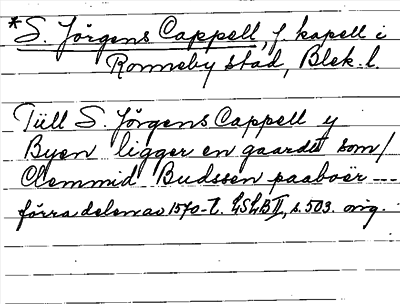 *S. Jörgens Cappell, f. kapell i
Ronneby stad, Blek. l.
Till S. Jörgens Cappell y
Byen ligger en gaardt som/
Clemmid Budssen paaboër ---
förra delen av 1570-t. LSLB II, s. 503. orig.